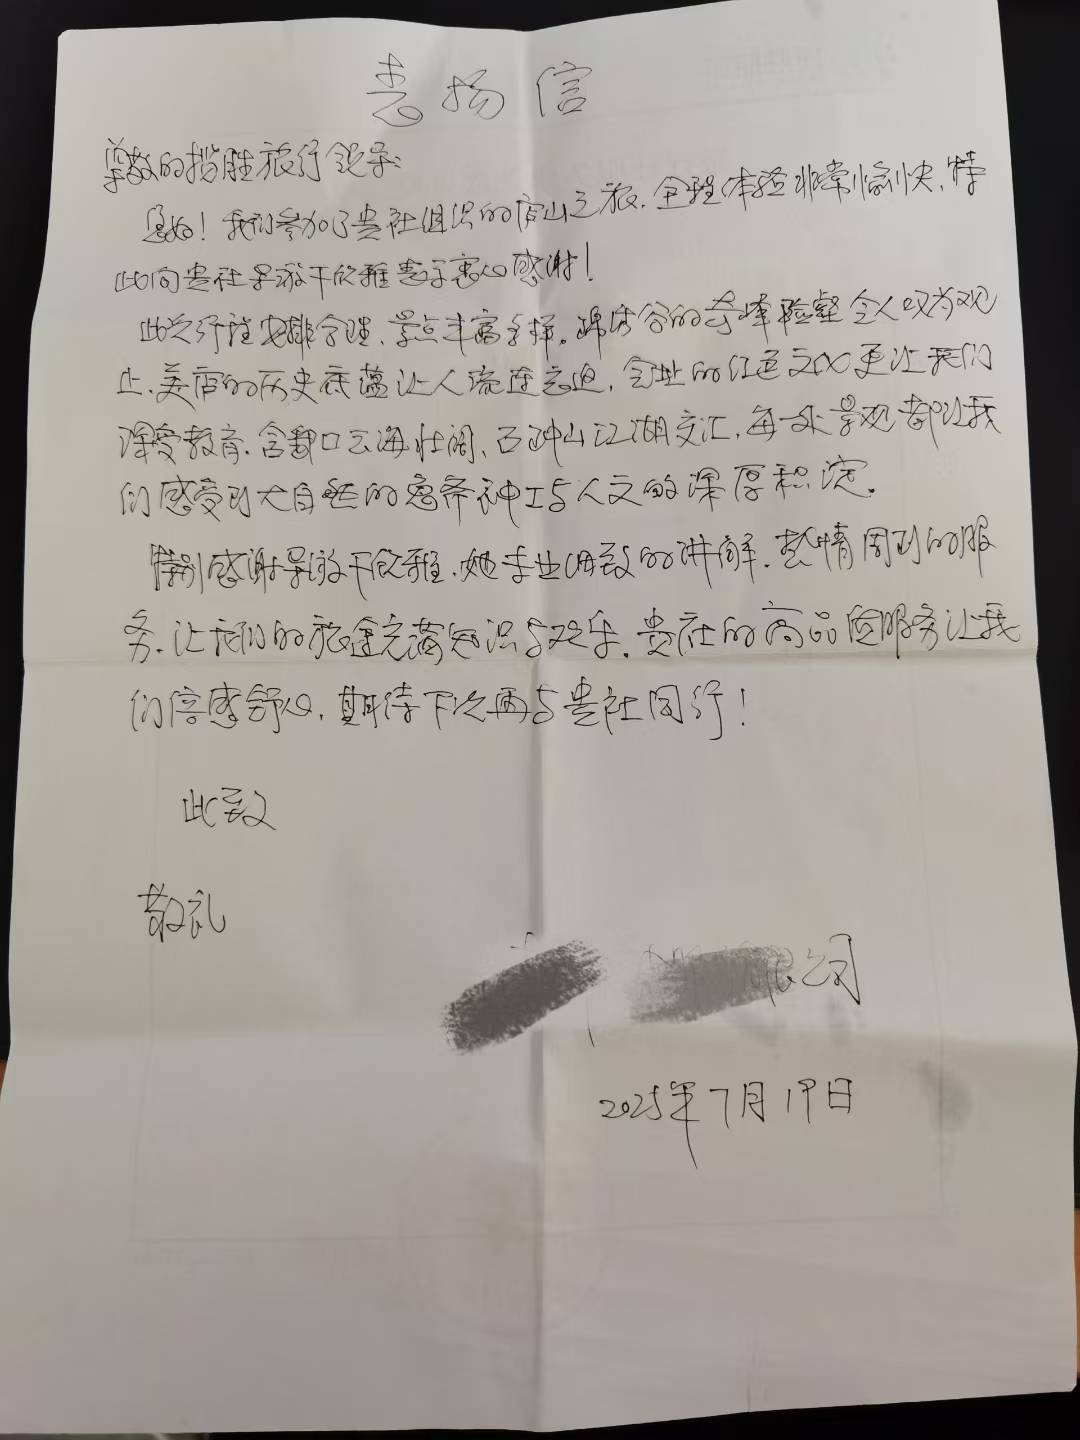 表扬信
尊敬的揽胜旅行领导:
您好！我们参加了贵社组织的庐山之旅,全程体验非常愉快,特
此向贵社导游干欣雅表示衷心感谢！
此次行程安排合理、景点丰富多样。锦绣谷的奇峰险壑令人叹为观
止,美庐的历史底蕴让人流连忘返,会址的红色文化更让我们
深受教育,含鄱口云海壮阔、石钟山江湖交汇,每一处景观都让我
们感受到大自然的鬼斧神工与人文的深厚积淀。
特别感谢导游干欣雅,她专业细致的讲解、热情周到的服
务,让我们的旅途充满知识与欢乐。贵社的高品质服务让我
们倍感舒心,期待下次再与贵社同行！
此致
敬礼
限公司
2025年7月19日